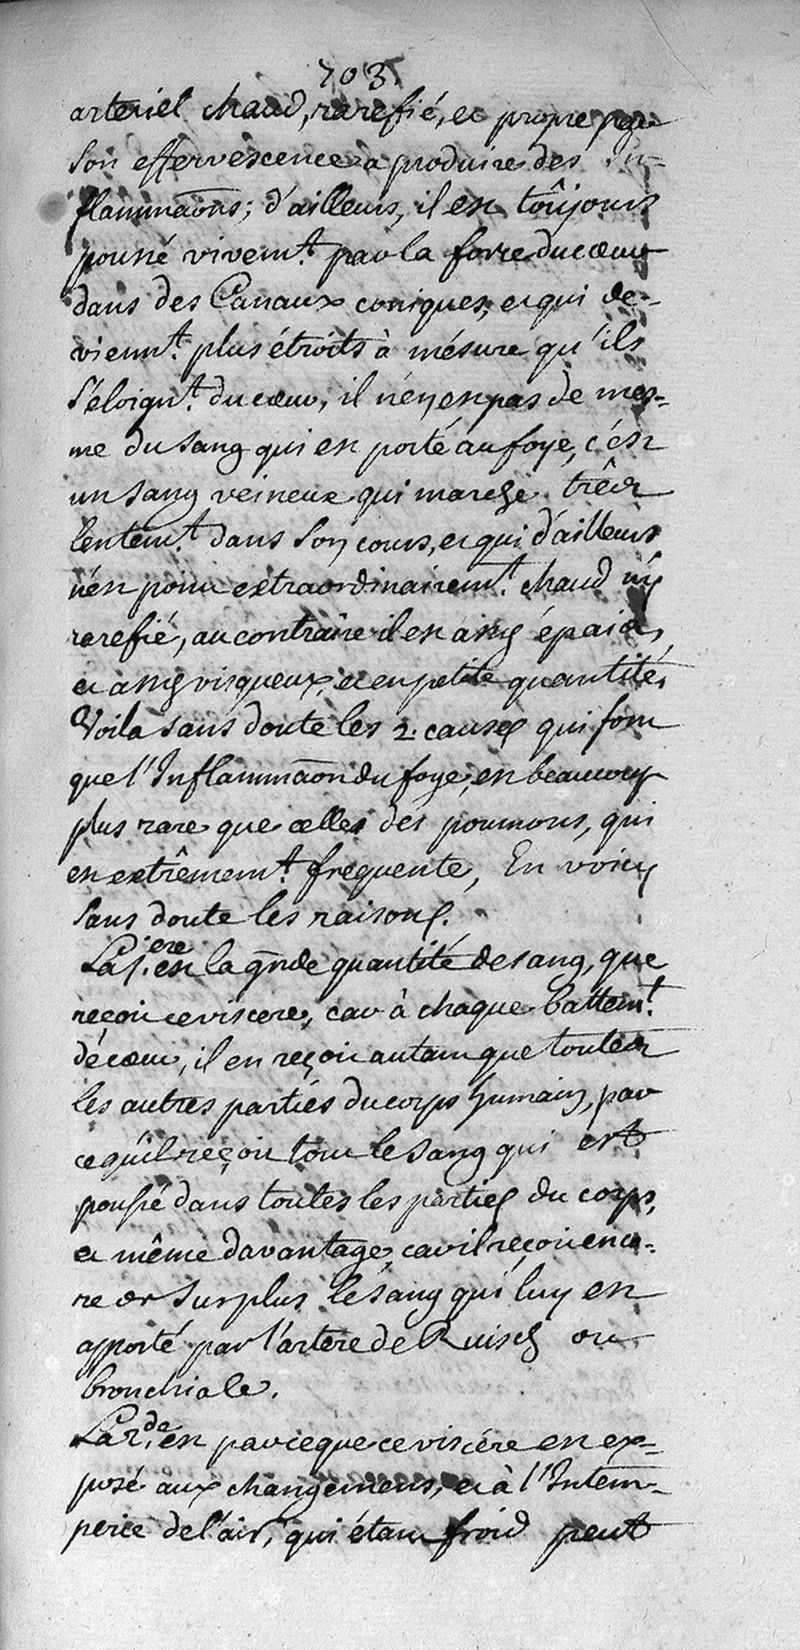 703.
arteriel chaud, rarefié, et propre par
son effervescence à produire des in-
flammãons; d'ailleurs, il est toûjours
poussé vivem.t par la force du cœur
dans des Canaux coniques, et qui de-
vienn.t plus étroits à mésure qu'ils
s'éloign.t du cœur, il n'en est pas de mes-
me du sang qui est porté au foye, c'est
un sang veineux qui marche trés
lentem.t dans son cours, et qui d'ailleurs
n'est point extraordinairem.t chaud ny
rarefié, au contraire il est assés épais,
et assés visqueux, et en petite quantité,
Voila sans doute les 2. causes qui font
que l'Inflammãon du foye, est beaucoup
plus rare que celles des poumons, qui
est extrêmem.t frequente, En voicy
sans doute les raisons.
La 1.ere est la g̃nde quantité de sang, que
reçoit ce viscere, car à chaque battem.t
de cœur, il en reçoit autant que toutes
les autres parties du corps humain, par
ce qu'il reçoit tout le sang qui est
poussé dans toutes les parties du corps,
et même davantage, car il reçoit enco-
re de surplus le sang qui luy est
apporté par l'artere de Ruisch ou
bronchiale.
La 2.de est parce que ce viscére est ex-
posé aux changemens, et à l'Intem-
perie de l'air, qui étant froid peut